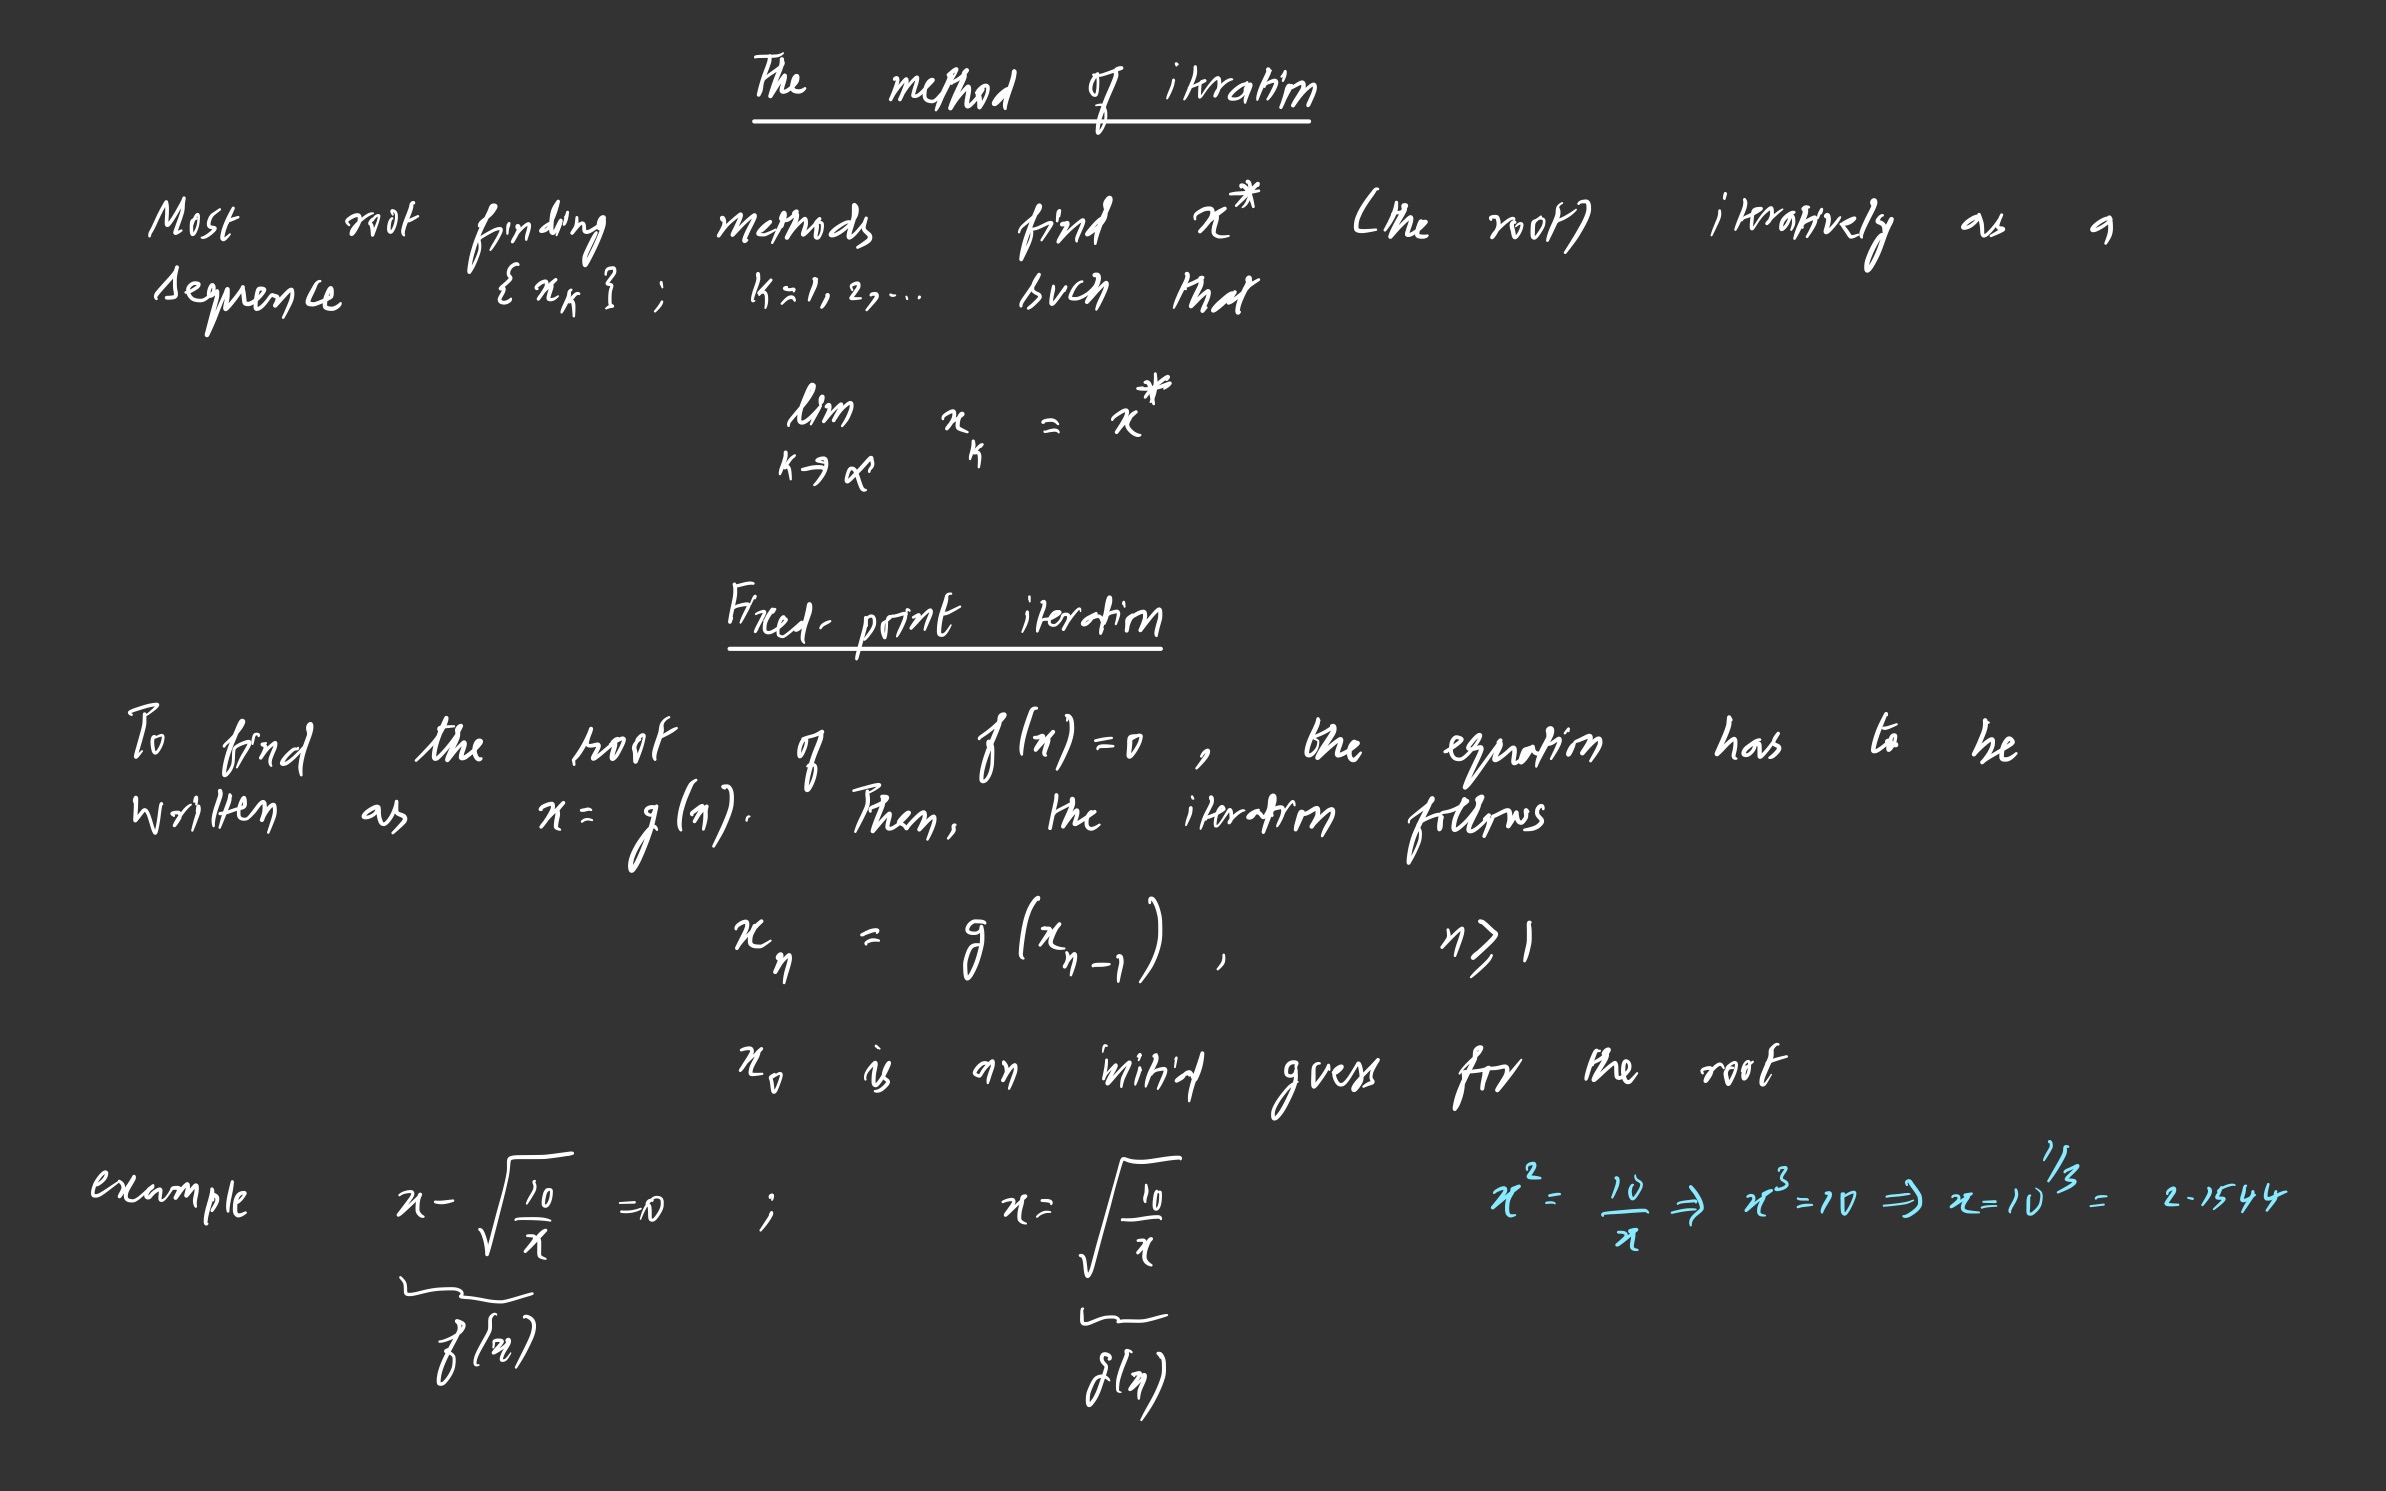 The method of iteration
Most root finding methods find x* (the root) iteratively as a
sequence {x_k} ; k=1, 2, ... such that
lim x_k = x*
k→∞
Fixed-point iteration
To find the root of f(x)=0 , the equation has to be
written as x=g(x). Then, the iteration follows
x_n = g(x_{n-1}) , n⩾1
x_0 is an initial guess for the root
example x-√(10/x) =0 ; x= √(10/x) x²= 10/x ⇒ x³=10 ⇒ x=10^{1/3} = 2.1544
f(x) g(x)